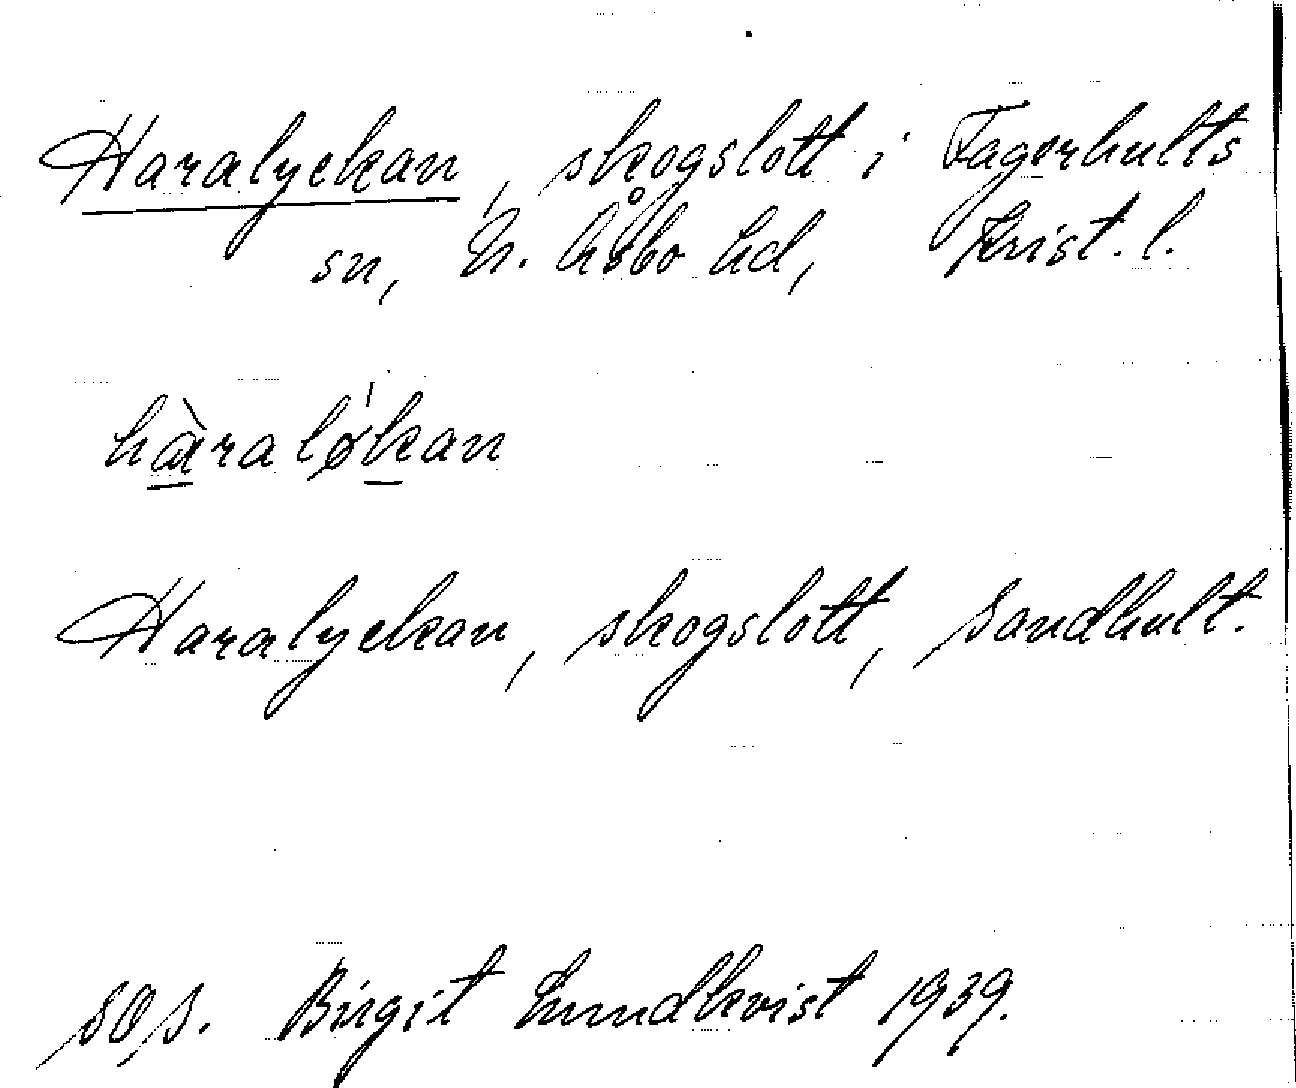 Haralyckan, skogslott i Fagerhults
sn, N. Åsbo hd, Krist. l.
hàraløkan
Haralyckan, skogslott, Sandhult.
SOS. Birgit Lundkvist 1939.